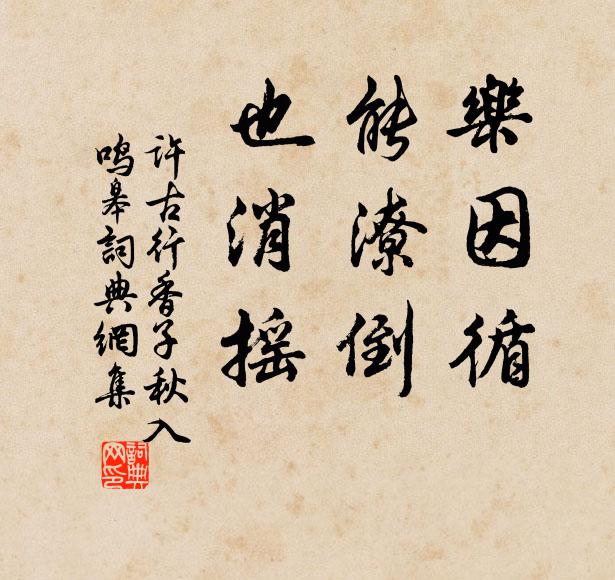 樂因循
能潦倒
也消摇
許古行香子秋入
鸣皋詞典網集
詞典
网印